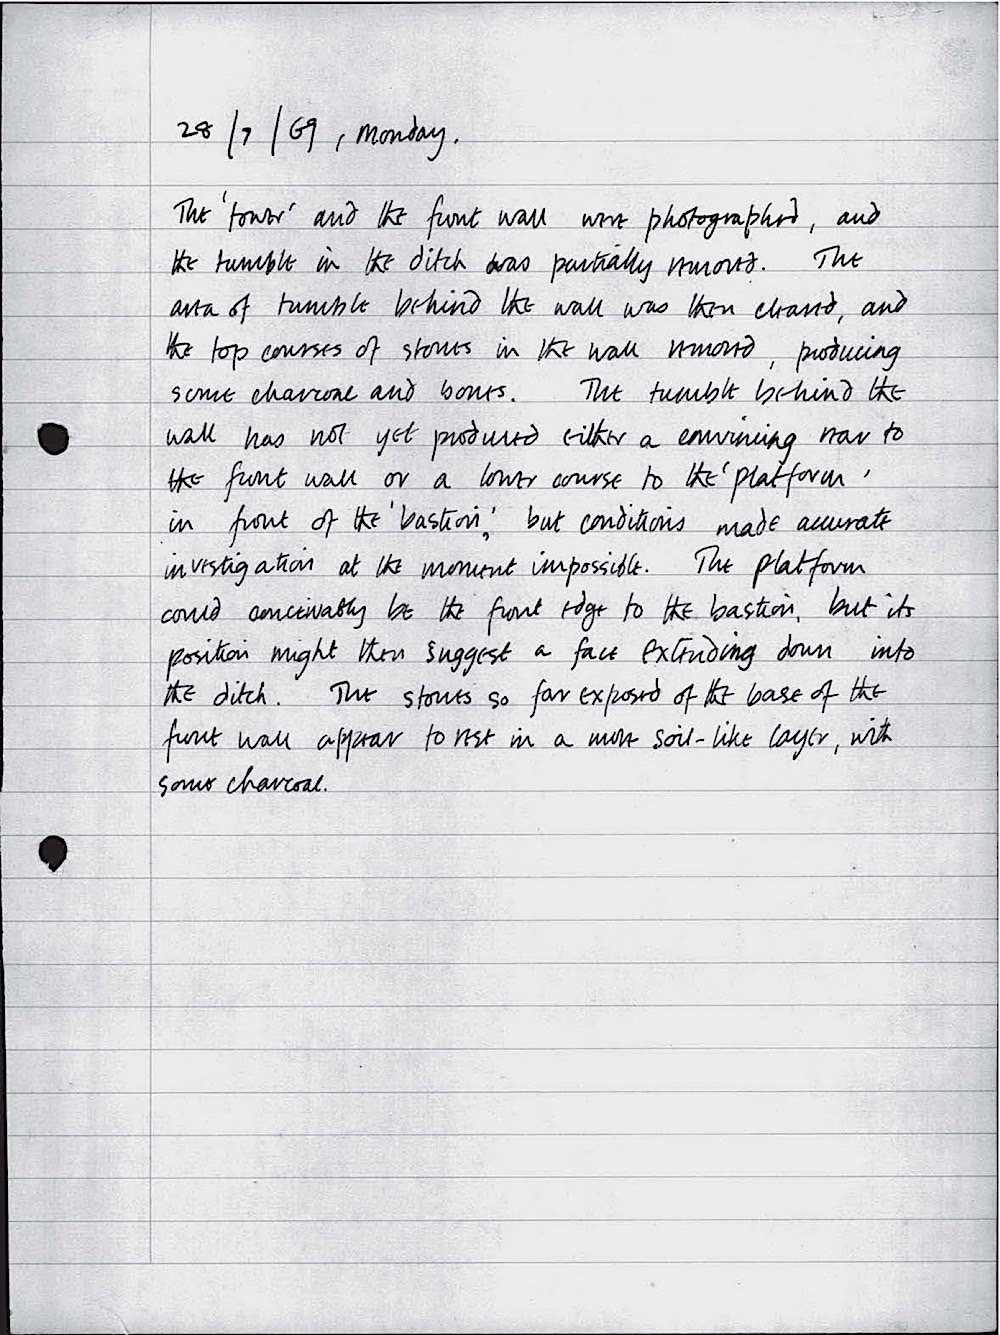 28/7/69, Monday.
The 'tower' and the front wall were photographed, and
the tumble in the ditch was partially removed. The
area of tumble behind the wall was then cleared, and
the top courses of stones in the wall removed, producing
some charcoal and bones. The tumble behind the
wall has not yet produced either a convincing rear to
the front wall or a lower course to the 'platform'
in front of the 'bastion', but conditions made accurate
investigation at the moment impossible. The platform
could conceivably be the front edge to the bastion, but its
position might then suggest a face extending down into
the ditch. The stones so far exposed of the base of the
front wall appear to rest in a more soil-like layer, with
some charcoal.